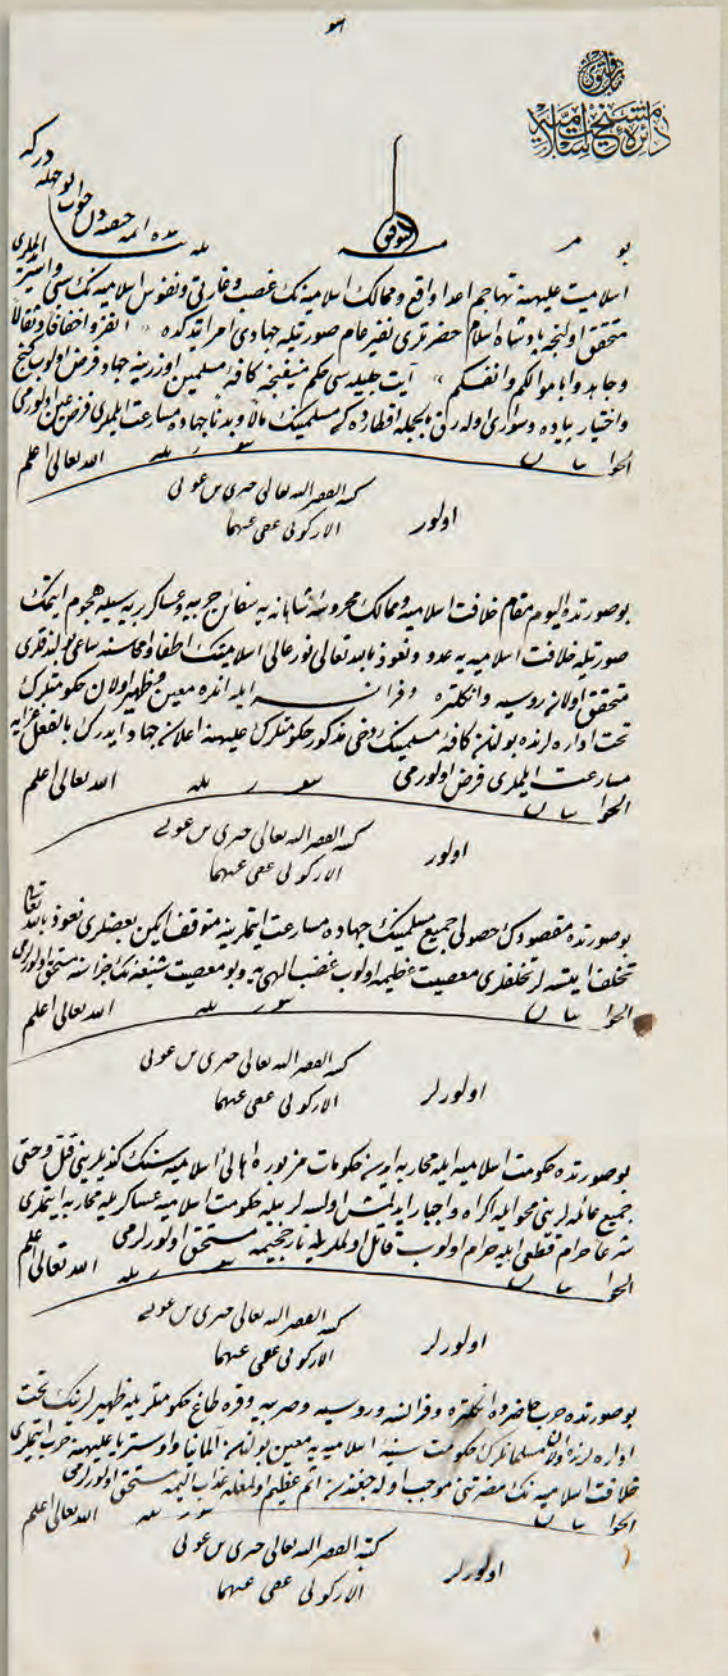 باب فتوى
دائرهٔ مشيخت اسلاميه
منه التوفيق
بو مسئله ده ائمهٔ حنفيه دن جواب بو وجهله دركه
اسلاميت عليهنه تهاجم اعدا واقع و ممالك اسلاميه نك غصب و غارتى و نفوس اسلاميه نك سبى و اسير ايدلملرى
متحقق اولنجه پادشاه اسلام حضرتلرى نفير عام صورتيله جهادى امر ايتدكده « انفروا خفافا و ثقالا
و جاهدوا باموالكم و انفسكم » آيت جليله سى حكم منيفنجه كافهٔ مسلمين اوزرينه جهاد فرض اولوب كنج
و اختيار پياده و سوارى اوله رق بالجمله اقطارده كى مسلمينك مالاً و بدناً جهاده مسارعت ايلملرى فرض عين اولورمى
الجواب الله تعالى اعلم
اولور
كتبه الفقير اليه تعالى خيرى بن عونى
الاركوبى عفى عنهما
بو صورتده اليوم مقام خلافت اسلاميه و ممالك محروسهٔ شاهانه يه سفائن حربيه و عساكر بريه سيله هجوم ايتمك
صورتيله خلافت اسلاميه يه عدو و نعوذ بالله تعالى نور عالئ اسلاميتك اطفا و امحاسنه ساعى بولندقلرى
متحقق اولان روسيه و انكلتره و فرانسه ايله انلره معين و ظهير اولان حكومتلرك
تحت اداره لرنده بولنان كافهٔ مسلمينك دخى مذكور حكومتلرك عليهنه اعلان جهاد ايدرك بالفعل غزايه
مسارعت ايلملرى فرض اولورمى
الجواب الله تعالى اعلم
اولور
كتبه الفقير اليه تعالى خيرى بن عونى
الاركوبى عفى عنهما
بو صورتده مقصودك حصولى جميع مسلمينك جهاده مسارعت ايتملرينه متوقف ايكن بعضلرى نعوذ بالله تعالى
تخلف ايتسه لر تخلفلرى معصيت عظيمه اولوب غضب الهى يه و بو معصيت شنيعه نك جزاسنه مستحق اولورلرمى
الجواب الله تعالى اعلم
اولورلر
كتبه الفقير اليه تعالى خيرى بن عونى
الاركوبى عفى عنهما
بو صورتده حكومت اسلاميه ايله محاربه ايدن حكومات مزبوره اهالئ اسلاميه سنك كنديلرينى قتل و حتى
جميع عائله لرينى محو ايله اكراه و اجبار ايدلمش اولسه لر بيله حكومت اسلاميه عساكريله محاربه ايتملرى
شرعاً حرام قطعى ايله حرام اولوب قاتل اولملريله نار جحيمه مستحق اولورلرمى
الجواب الله تعالى اعلم
اولورلر
كتبه الفقير اليه تعالى خيرى بن عونى
الاركوبى عفى عنهما
بو صورتده حرب حاضرده انكلتره و فرانسه و روسيه و صربيه و قره طاغ حكومتلريله ظهيرلرينك تحت
اداره لرنده اولان مسلمانلرك حكومت سنيهٔ اسلاميه يه معين بولنان المانيا و اوستريا عليهنه حرب ايتملرى
خلافت اسلاميه نك مضرتنى موجب اوله جغندن اثم عظيم اولمغله عذاب اليمه مستحق اولورلرمى
الجواب الله تعالى اعلم
اولورلر
كتبه الفقير اليه تعالى خيرى بن عونى
الاركوبى عفى عنهما